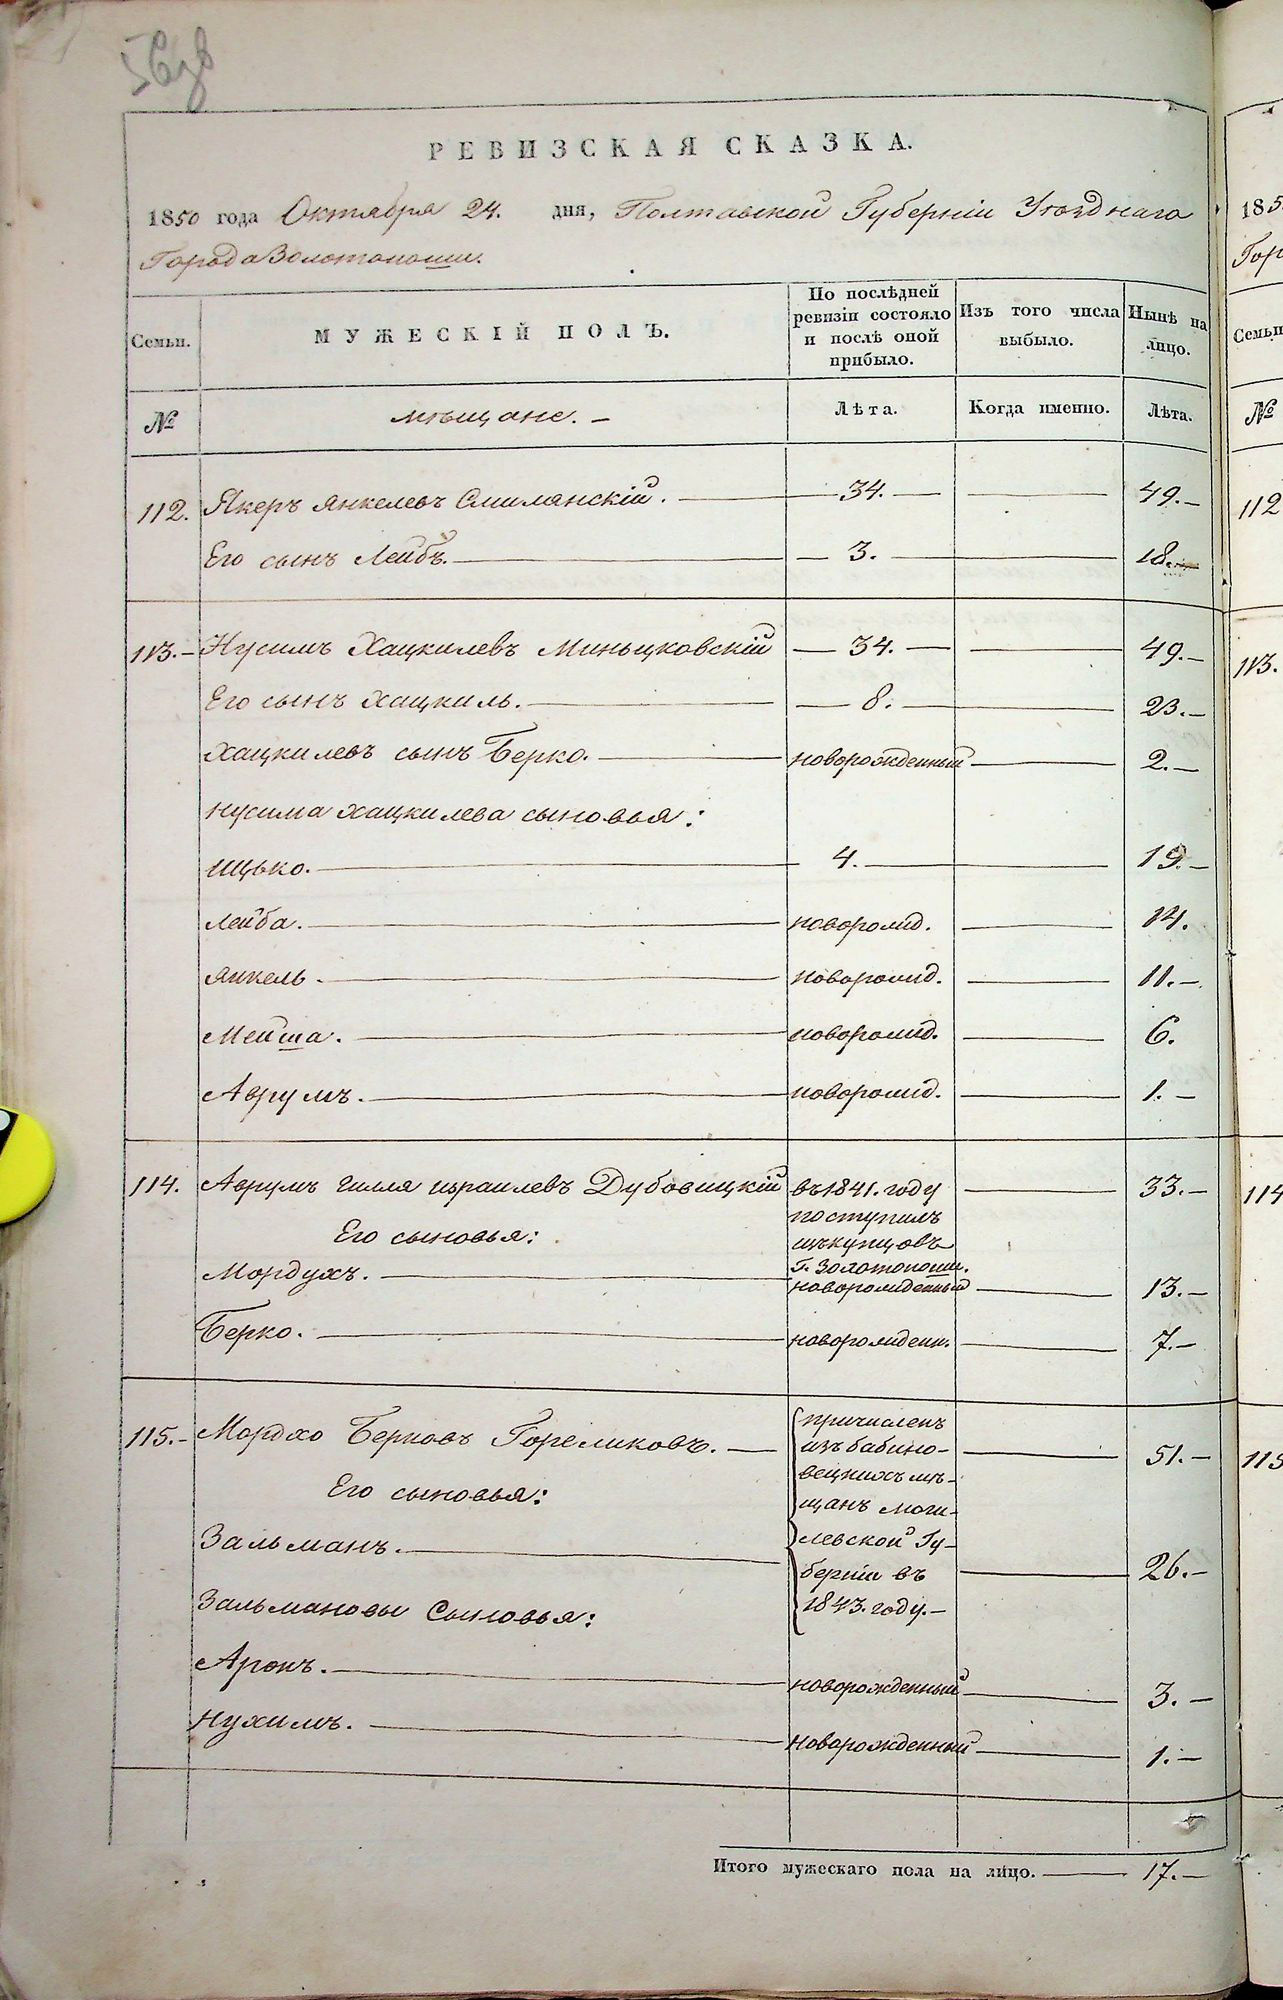 РЕВИЗСКАЯ СКАЗКА.
1850 года Октября 24. дня, Полтавской Губерніи Уѣзднаго
Города Золотоноши.
Семьи.
МУЖЕСКІЙ ПОЛЪ.
По послѣдней ревизіи состояло и послѣ оной прибыло.
Изъ того числа выбыло.
Нынѣ на лицо.
№
мѣщане. –
Лѣта.
Когда именно.
Лѣта.
112. Якеръ Янкелевъ Смилянскій. 34. 49.
Его сынъ Лейбъ. 3. 18.
113. Нусимъ Хацкилевъ Миньцковскій 34. 49.
Его сынъ Хацкиль. 8. 23.
Хацкилевъ сынъ Берко. новорожденный 2.
Нусима Хацкилева сыновья:
Ицько. 4. 19.
Лейба. новорожд. 14.
Янкель. новорожд. 11.
Мейша. новорожд. 6.
Аврумъ. новорожд. 1.
114. Аврумъ Гилля Израилевъ Дубовицкій въ 1841. году 33.
поступилъ
Его сыновья:
изъ купцовъ
Г. Золотоноши.
Мордухъ. новорожденный 13.
Берко. новорожденн. 7.
115. Мордхо Берковъ Гореликовъ. 51.
причисленъ
изъ бабино-
вецкихъ мѣ-
Его сыновья:
щанъ Моги-
левской Гу-
Зальманъ. 26.
берніи въ
1843. году. –
Зальмановы Сыновья:
Аронъ. новорожденный 3.
Нухимъ. новорожденный 1.
Итого мужескаго пола на лицо. 17.
185
Гор
Семьи
№
112
113.
114
115